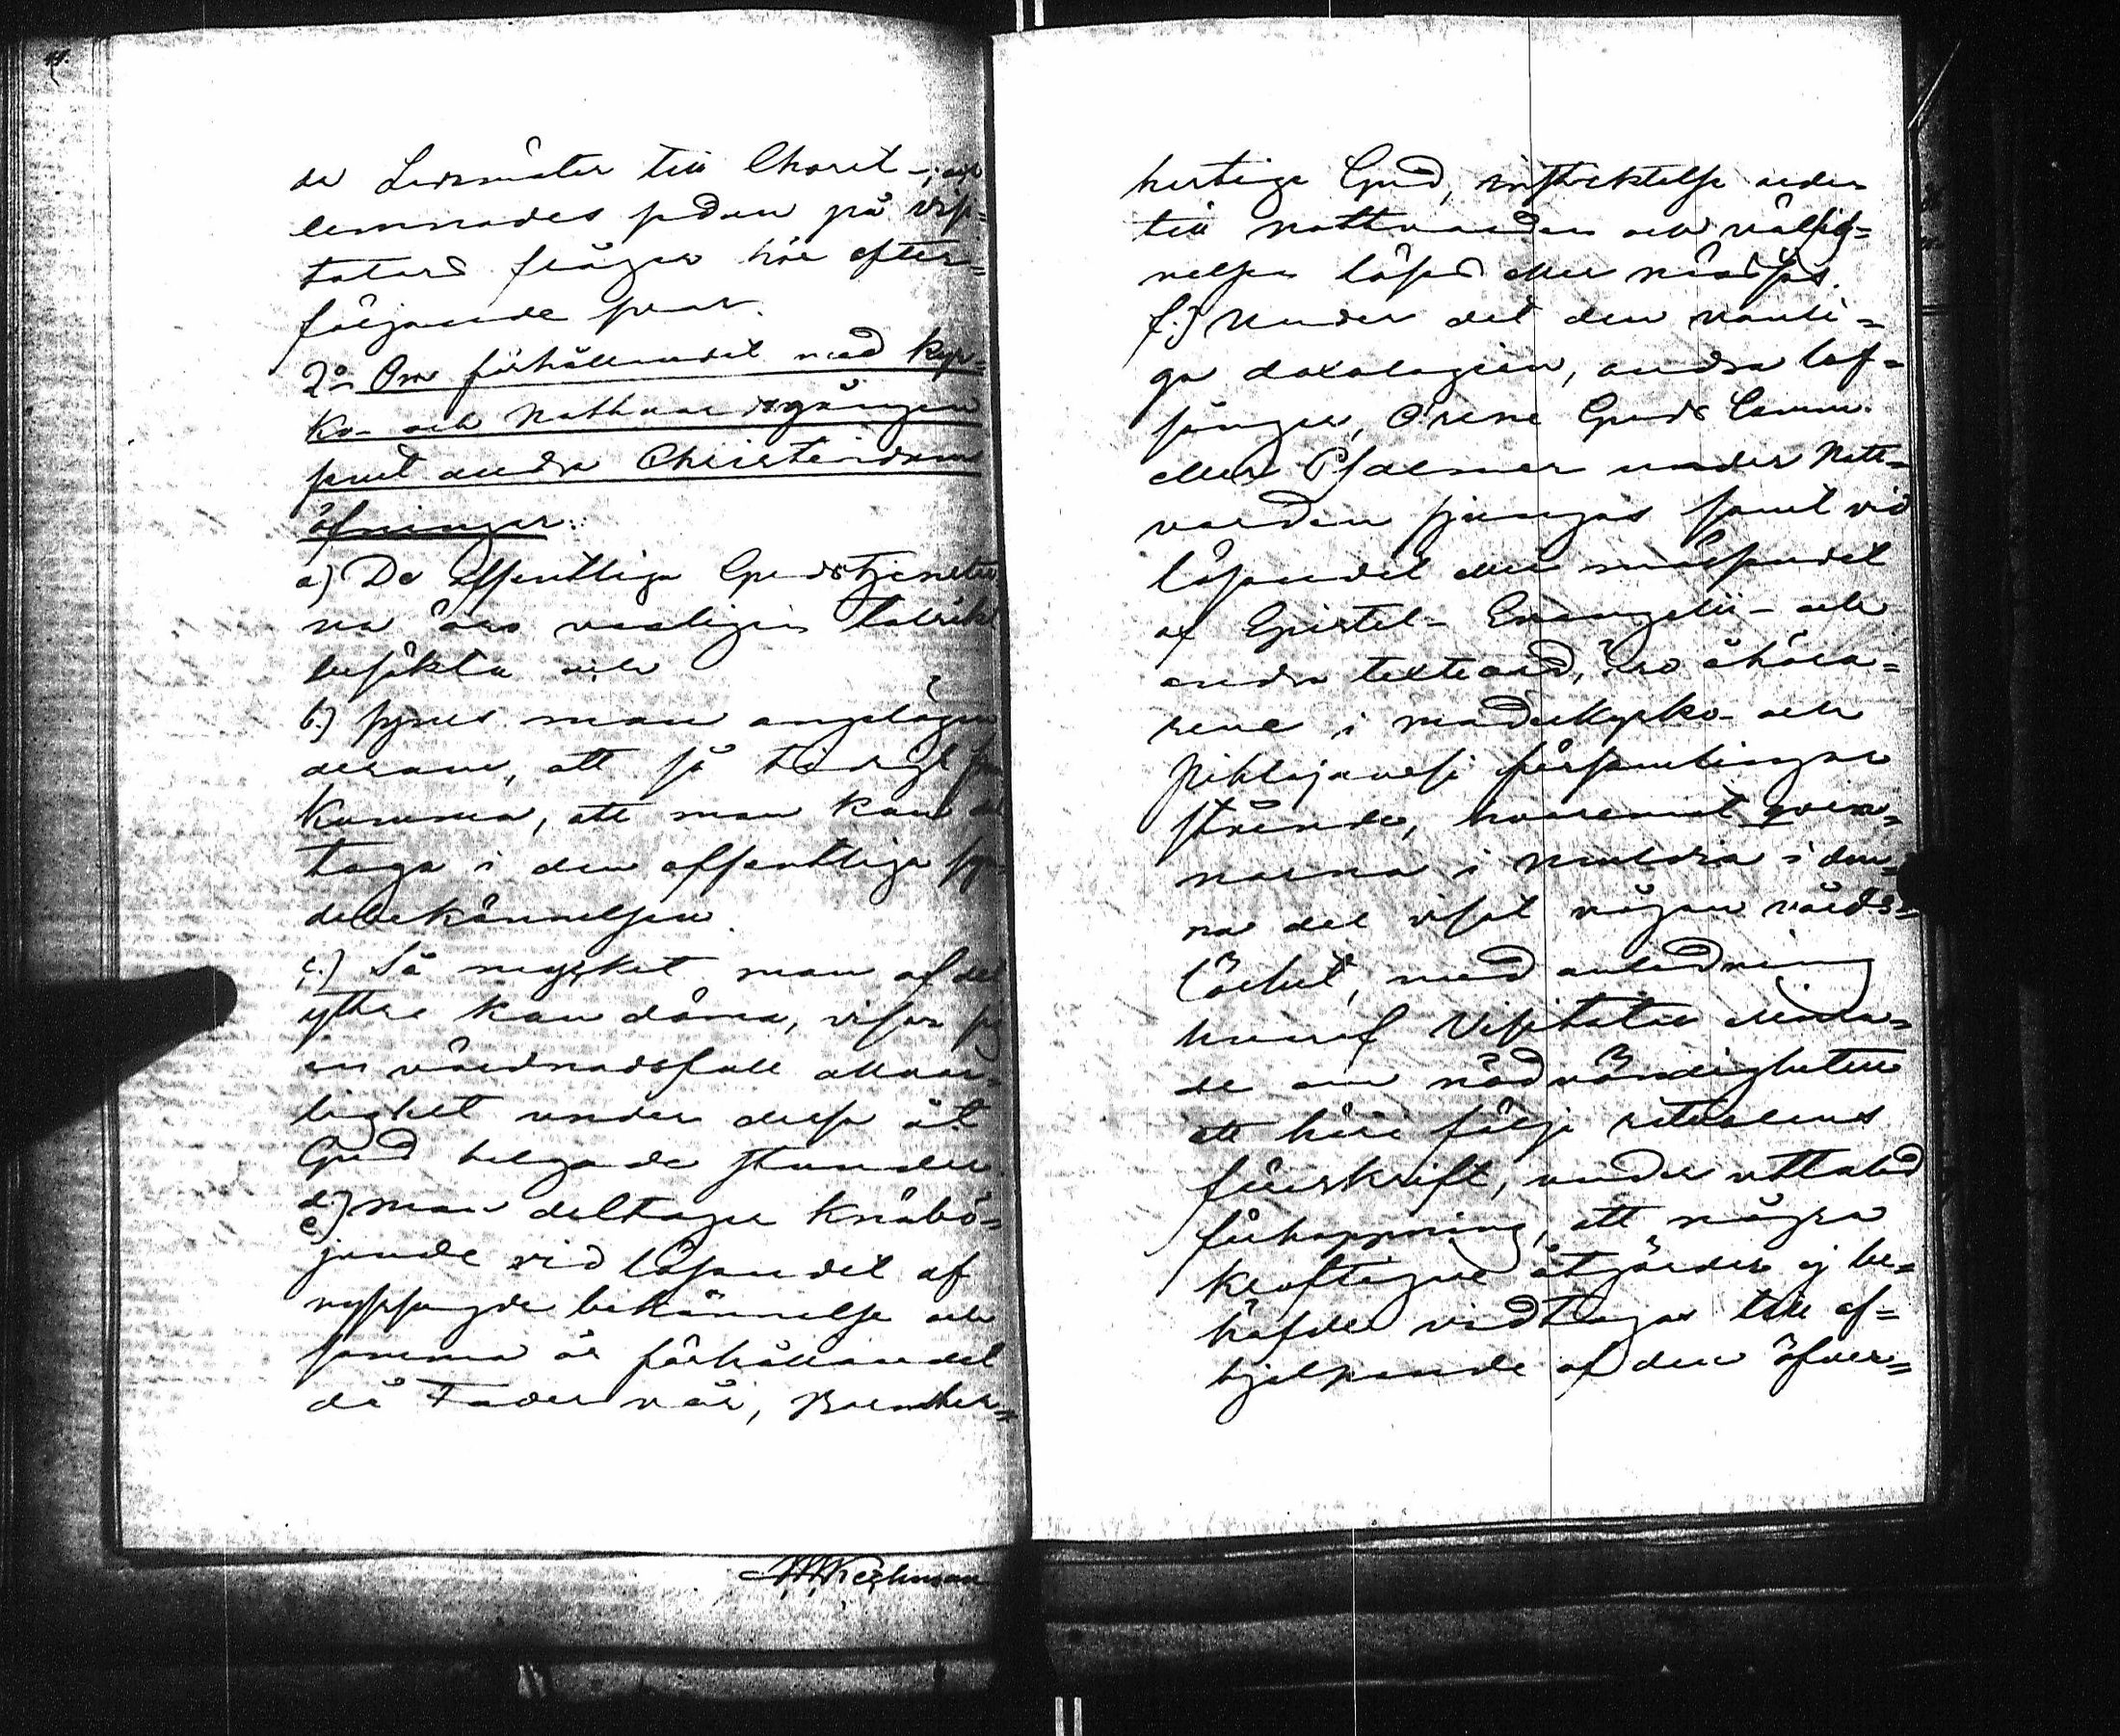 de Ledamöter till Choret -; och
lemnades sedan på visi=
tators frågor här efter=
följande svar.
2o Om förhållandet med kyr=
ko- och Nattvardsgången
samt andra Christendoms
öfningar:
a) De offentliga Gudstjenster
na äro vanligen talrikt
besökta och
b.) synes man angelägen
derom, att så tidigt
komma, att man kan del
taga i den offentliga syn=
debekännelsen.
c.) Så mycket man af det
yttre kan döma, visar sig
en vördnadsfull allvar=
lighet under dessa åt
Gud helgade stunder.
d.) e) man deltager knäbö=
jande vid läsandet af
nysssagde bekännelse och
samma är förhållandet
då Fader vår, Barmher=
hertige Gud, instiktelse orden
till nattvarden och välsig=
nelsen läses eller mässas.
f.) Under det den vanli=
ga doxologien, andra lof=
sånger, O rene Guds Lamm.
eller Psalmer under Natt=
varden sjungas samt vid
läsandet eller mässandet
af Epistel- Evangelii- och
andra texteord, äro åhöra=
rene i moderkyrko- och
Pihlajavesi församlingar
stående, hvaremot qvin=
norna i Multia i den=
na del visat någon vårds=
löshet, med anledning
hvaraf Visitator erinra=
de om nödvändigheten
att häri följa ritualens
föreskrift, under uttalad
förhoppning, att några
kraftigare åtgärder ej be=
höfde vidtagas till af=
hjelpande af den öfver=